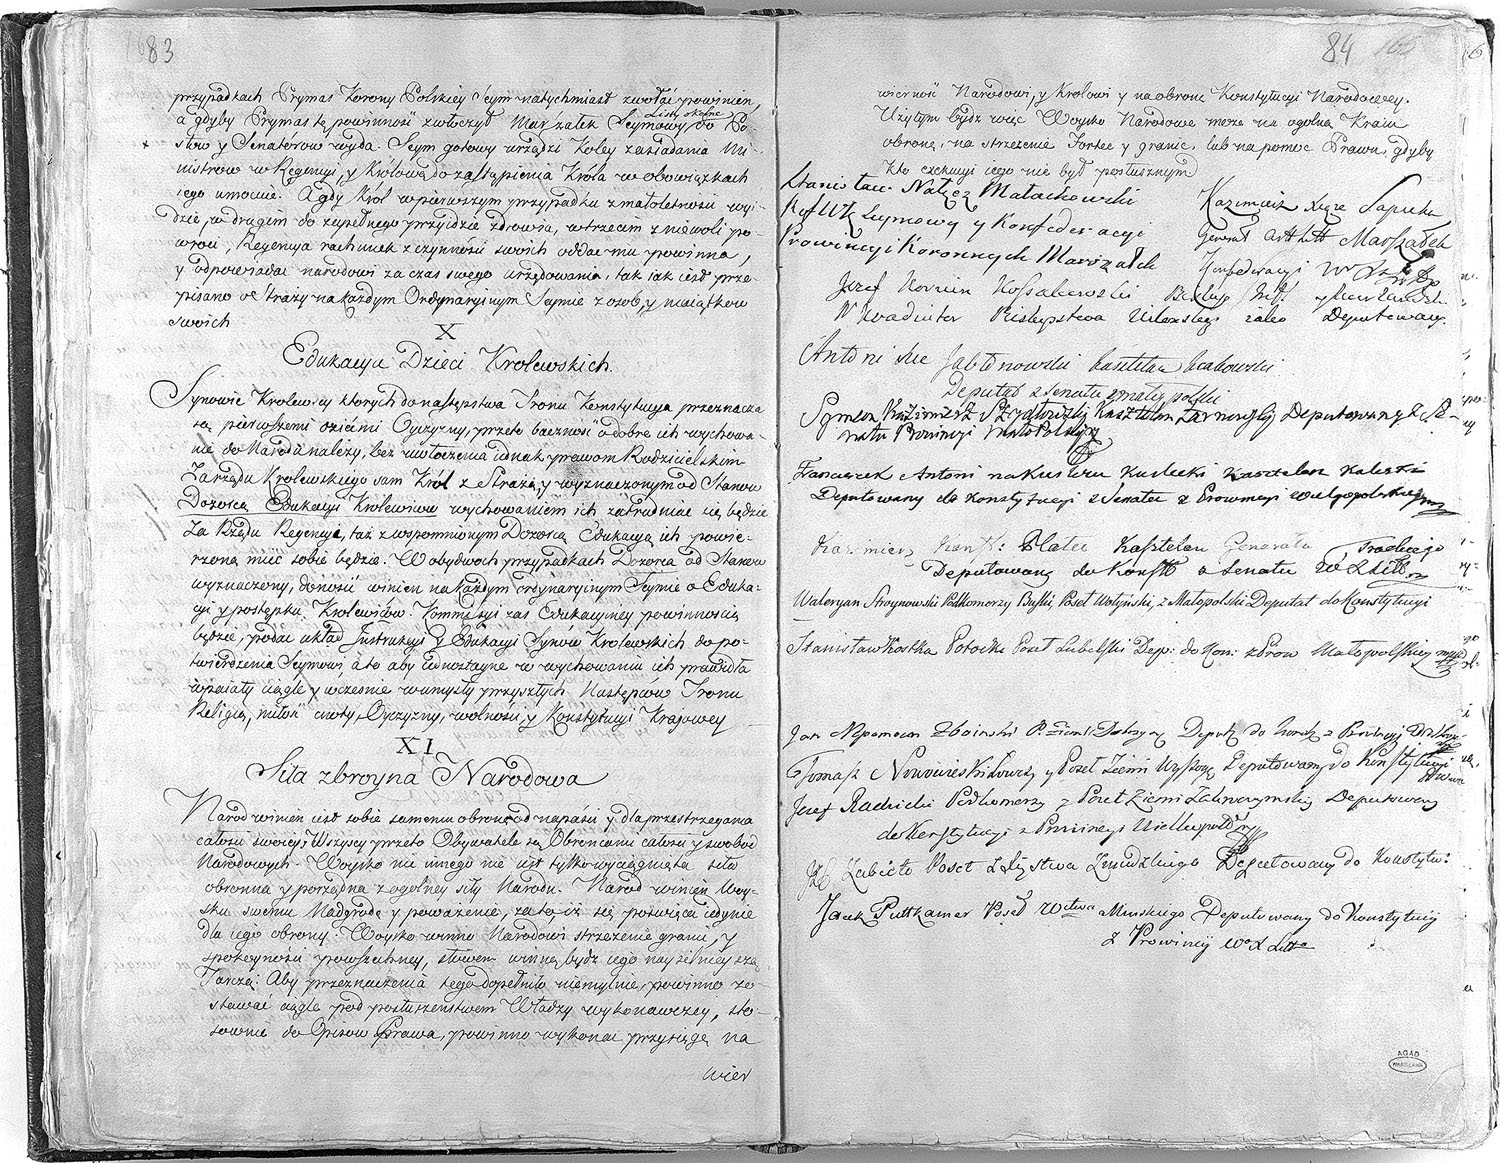 83
przypadkach Prymas Korony Polskiey Seym natychmiast zwołać powinien,
a gdyby Prymas tę powinność zwłoczył Marszałek Seymowy Listy okolne do Po-
słów y Senatorow wyda Seym gotowy urządzi Koley zasiadania Mi-
nistrow w Regencyi, y Królową do zastąpienia Króla w obowiązkach
iego umocuie. A gdy Król w pierwszym przypadku z małoletności wyi-
dzie, w drugim do zupełnego przyidzie zdrowia, w trzecim z niewoli po-
wroci, Regencya rachunek z czynności swoich oddać mu powinna,
y odpowiadać narodowi za czas swego urzędowania, tak iak iest prze-
pisano o Straży na każdym Ordynaryinym Seymie z osob, y maiątkow
swoich
X
Edukacya Dzieci Krolewskich.
Synowie Krolewscy ktorych do następstwa Tronu Konstytucya przeznacza
są pierwszemi dziećmi Oyczyzny, przeto baczność o dobre ich wychowa-
nie do Narodu należy, bez uwłoczenia iednak prawom Rodzicielskim
Za rządu Krolewskiego sam Król z Strażą, y wyznaczonym od Stanow
Dozorcą Edukacyi Królewiców wychowaniem ich zatrudniać się będzie
Za Rządu Regencyi, taż z wspomnionym Dozorcą Edukacyą ich powie-
rzoną mieć sobie będzie. W obydwoch przypadkach Dozorca od Stanow
wyznaczony, donosić winien na każdym ordynaryinym Seymie o Eduka-
cyi y postępku Krolewiców. Kommissyi zaś Edukacyiney powinnością
będzie, podać układ Instrukcyi y Edukacyi Synów Królewskich do po-
twierdzenia Seymowi, a to aby iednostayne w wychowaniu ich prawidła
wpaiały ciągle y wcześnie w umysły przyszłych Następców Tronu
Religią, miłość cnoty, Oyczyzny, wolności, y Konstytucyi Kraiowey
XI
Siła zbroyna Narodowa
Narod winien iest sobie samemu obronę od napaści y dla przestrzegania
całości swoiey; Wszyscy przeto Obywatele są Obrońcami całości y swobod
Narodowych. Woysko nic innego nie iest tylko wyciągnięta siła
obronna y porządna z ogolney siły Narodu. Narod winien Woy-
sku swemu Nadgrodę y poważenie, za to, iż się poświęca iedynie
dla iego obrony. Woysko winno Narodowi strzeżenie granic, y
spokoyności powszechney, słowem winno bydz iego naysilnieyszą
Tarczą: Aby przeznaczenia tego dopełniło niemylnie, powinno zo-
stawać ciągle pod posłuszeństwem Władzy wykonawczey, sto-
sownie do Opisow Prawa, powinno wykonać przysięgę na
wier
84 165
wierność Narodowi, y Krolowi y na obronę Konstytucyi Narodowey.
Użytym bydz więc Woysko Narodowe może na ogolną Kraiu
obronę, na strzeżenie Fortec y granic, lub na pomoc Prawu, gdyby
kto exekucyi iego nie był posłusznym
Stanisław Nałęcz Małachowski
Ref: W: K: Seymowy y Konfederacyi
Prowincyi Koronnych Marszałek
Kazimierz Xiąże Sapieha
Generał Artt Litt Marszałek
Konfederacyi W X Litt
Jozef Korwin Kossakowski Biskup Inff: y Kurlandzki
N Koadiutor Biskupstwa Wilenskiego iako Deputowany.
Antoni Xże Jabłonowski kasztelan krakowski
Deputat z Senatu małey polski
Symeon Kazimierz Szydłowski Kasztelan Żarnowski Deputowany z Se-
natu Prowincyi MałoPolskiey
Franciszek Antoni na Kwilczu Kwilecki Kasztelan Kaliski
Deputowany do Konstytucyi z Senatu z Prowincyi wielgopolskiey
Kazimierz Konst: Plater Kasztelan Generału Trockiego
Deputowany do Konstt z Senatu W X Litt
Waleryan Stroynowski Podkomorzy Buski Poseł Wołyński z Małopolski Deputat do Konstytucyi
Stanisław Kostka Potocki Poseł Lubelski Dep: do Kon: z Prow Małopolskiey
Jan Nepomucen Zboinski P. Ziemi Dobrzyń Deputt do Konst z Prowincyi Wielkopo
Tomasz Nowowieski Łowczy y Poseł Ziemi Wyszog Deputowany do Konstytucyi
Jozef Radzicki Podkomorzy y Poseł Ziemi Zakroczymskiey Deputowany
do Konstytucyi z Prowincyi Wielkopolskiey
Zabiełło Poseł z Xięstwa Zmudzkiego Deputowany do Konstytu:
Jacek Puttkamer Poseł Wdztwa Minskiego Deputowany do Konstytucyi
z Prowincyi W X Litt
AGAD
WARSZAWA